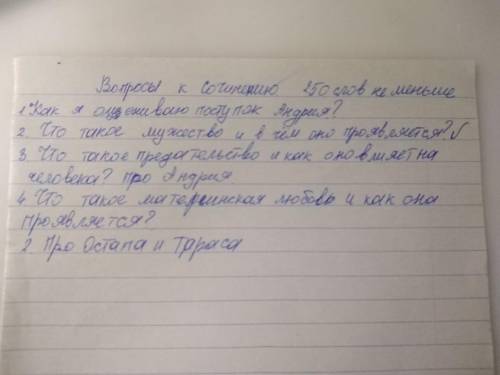 Вопросы к сочинению 250 слов не меньше
1. Как я оцениваю поступок Андрия?
2. Что такое мужество и в чём оно проявляется? √
3. Что такое предательство и как оно влияет на
человека? про Андрия.
4. Что такое материнская любовь и как она
проявляется?
2. Про Остапа и Тараса